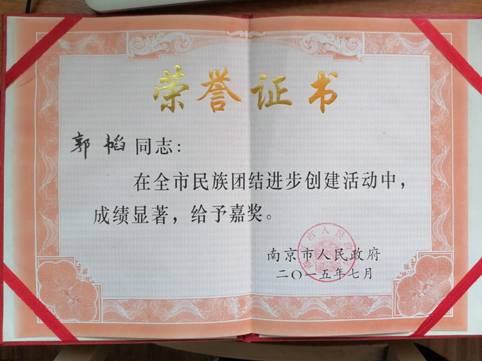 荣誉证书
郭韬同志：
在全市民族团结进步创建活动中，
成绩显著，给予嘉奖。
南京市人民政府
二〇一五年七月